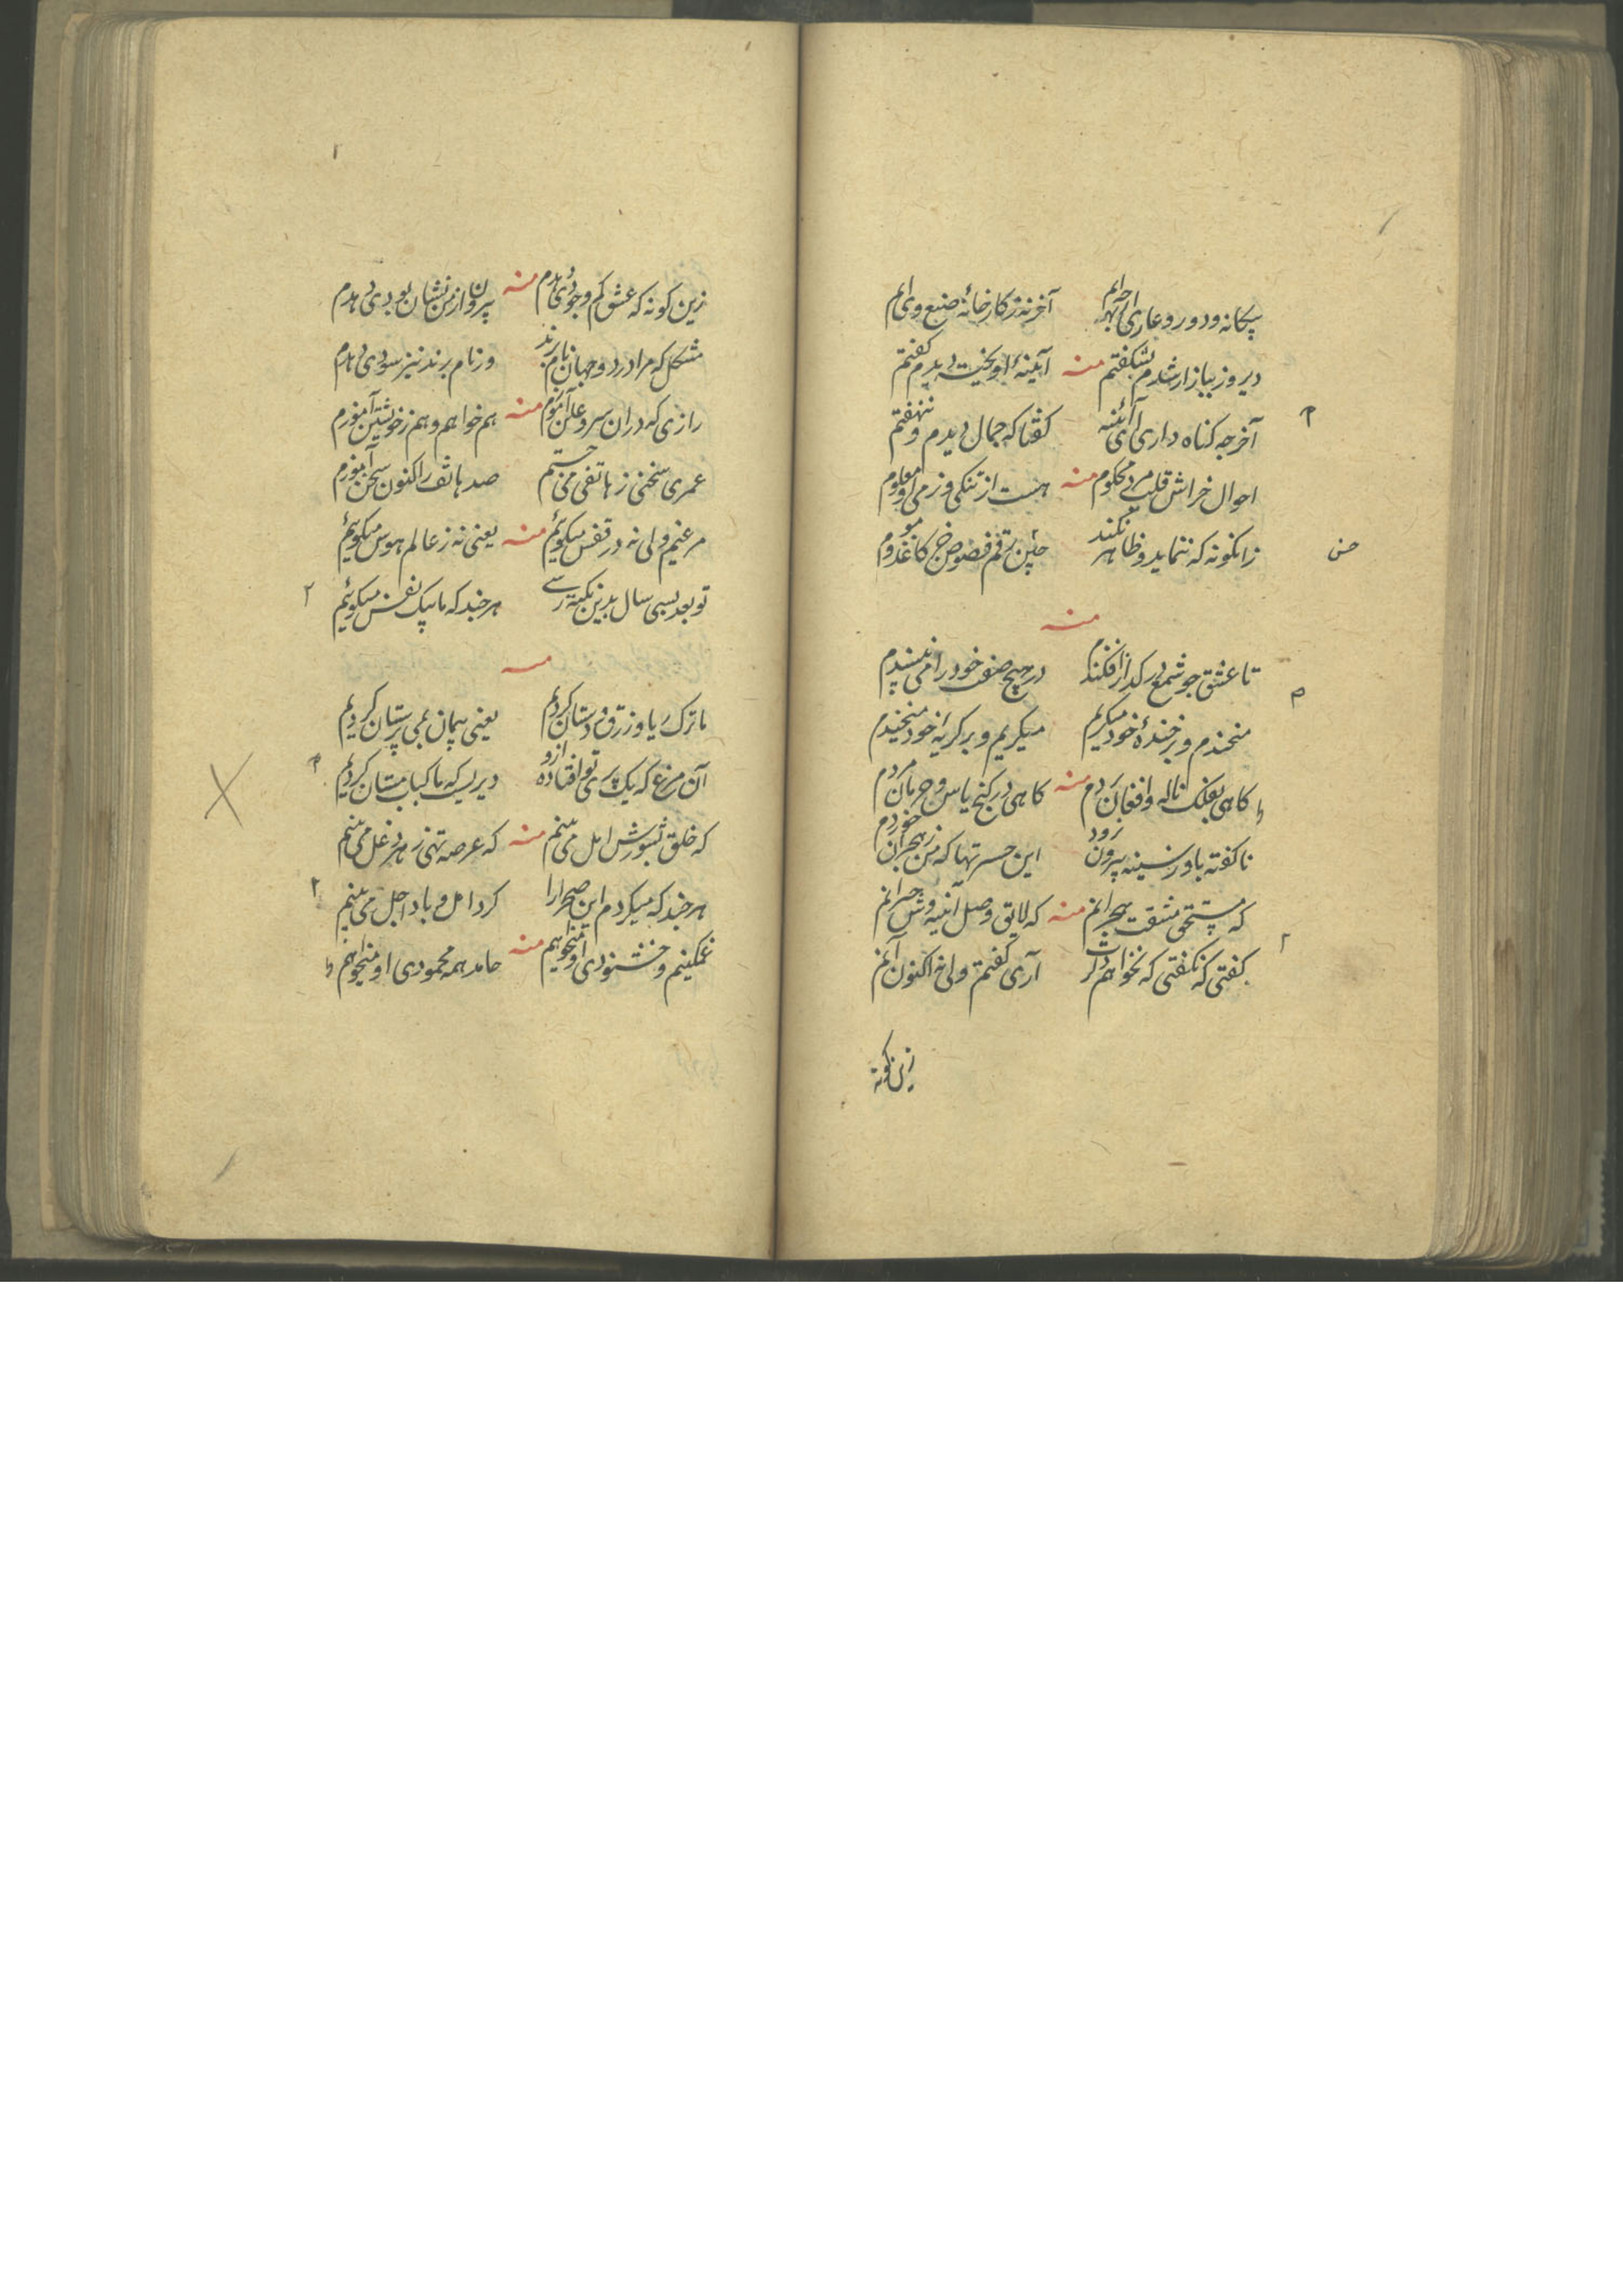 بیکانه ودور وعاری آخر بهر چه ام آخر نه ز کارخانهٔ صنع وی ام
دیروز ببازار شدم بشکفتم منه آیینهٔ اویخیته دیدم کفتم
آخر چه کناه داری آی آئینه کفتا که جمال دیدم و ننهفتم
احوال خراش قلب مرد محکوم منه هست از تنکی و نرمی او معلوم
زانکونه که ننماید و ظاهر نکند رقم فصوص جز کاغذ وموم
منه
تا عشق چو شمع در کداز افکندم در هیچ صفت خود را می نپسندم
میخندم و بر خندهٔ خود میکریم میکریم و بر کریهٔ خود میخندم
کاهی بفلک ناله وافغان بردم منه کاهی در کنج یاس وحرمان مردم
ناکفته باو ز سینه بیرون نرود این حسرتها که من ز هجران خوردم
که مستحق مشقت هجرانم منه که لایق وصل آن
کفتی که نکفتی که نخواهم کرت آری کفتم ولی نه اکنون آنم
زین کونه
زین کونه که عشق کم وجودی دهدم منه بیرون از من نشان بودی دهدم
مشکل که مرا در دو جهان نام برند ور نام برند نیز سودی دهدم
رازی که دران سر وعلن آموزم منه هم خواهم وهم ز خویشتن آموزم
عمری سخنی ز هاتفی می جستم صد هاتف را کنون سخن آموزم
مرغیم ولی نه در قفس میکوئیم منه یعنی نه ز عالم هوس میکوئیم
تو بعد بسی سال بدین نکته رسی هر چند که ما بیک نفس میکوئیم
منه
ما ترک ریا و زرق و دستان کردیم یعنی پیمان بمی پرستان کردیم
آن مرغ که یک پر توی افتاده ازو دیریست که ما کباب مستان کردیم
که خلق بشورش امل می بینم منه که عرصه تهی ز هر دغل می بینم
هر چند که میکردم این صحرا را کرد امل و باد اجل می بینم
غمکینم وخشنودی او میخواهم منه حامد همه محمودی او میخواهم